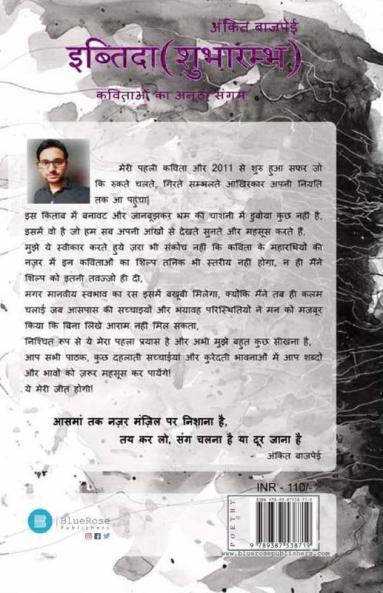 अंकित बाजपेई
इब्तिदा(शुभारम्भ)
कविताओं का अनूठा संगम
मेरी पहली कविता और 2011 से शुरु हुआ सफर जो
कि रुकते चलते, गिरते सम्भलते आखिरकार अपनी नियति
तक आ पहुंचा|
इस किताब में बनावट और जानबूझकर भ्रम की चाशनी में डुबोया कुछ नहीं है,
इसमें वो है जो हम सब अपनी आंखों से देखते सुनते और महसूस करते हैं,
मुझे ये स्वीकार करते हुये ज़रा भी संकोच नहीं कि कविता के महारथियों की
नज़र में इन कविताओं का शिल्प तनिक भी स्तरीय नहीं होगा, न ही मैंने
शिल्प को इतनी तवज्जो ही दी,
मगर मानवीय स्वभाव का रस इसमें बखूबी मिलेगा, क्योंकि मैंने तब ही कलम
चलाई जब आसपास की सच्चाइयों और भयावह परिस्थितियों ने मन को मजबूर
किया कि बिना लिखे आराम नहीं मिल सकता,
निश्चित रूप से ये मेरा पहला प्रयास है और अभी मुझे बहुत कुछ सीखना है,
आप सभी पाठक, कुछ दहलाती सच्चाईयां और कुरेदती भावनाओं में आप शब्दों
और भावों को ज़रूर महसूस कर पायेंगे!
ये मेरी जीत होगी!
आसमां तक नज़र मंज़िल पर निशाना है,
तय कर लो, संग चलना है या दूर जाना है
- अंकित बाजपेई
INR - 110/-
POETRY
BlueRose
Publishers
9789387538719
www.bluerosepublishers.com